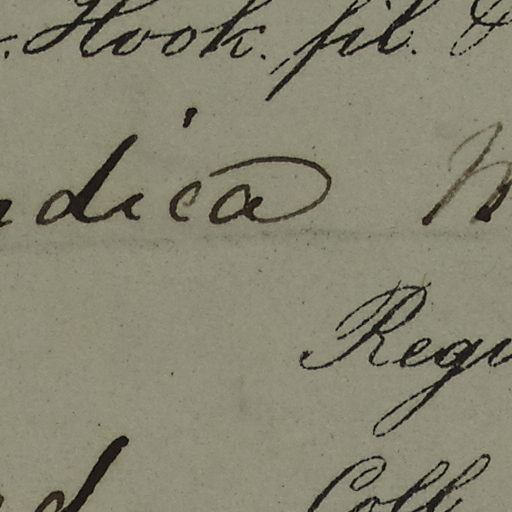 Hook. fil. &
ndica
Regi
d Coll